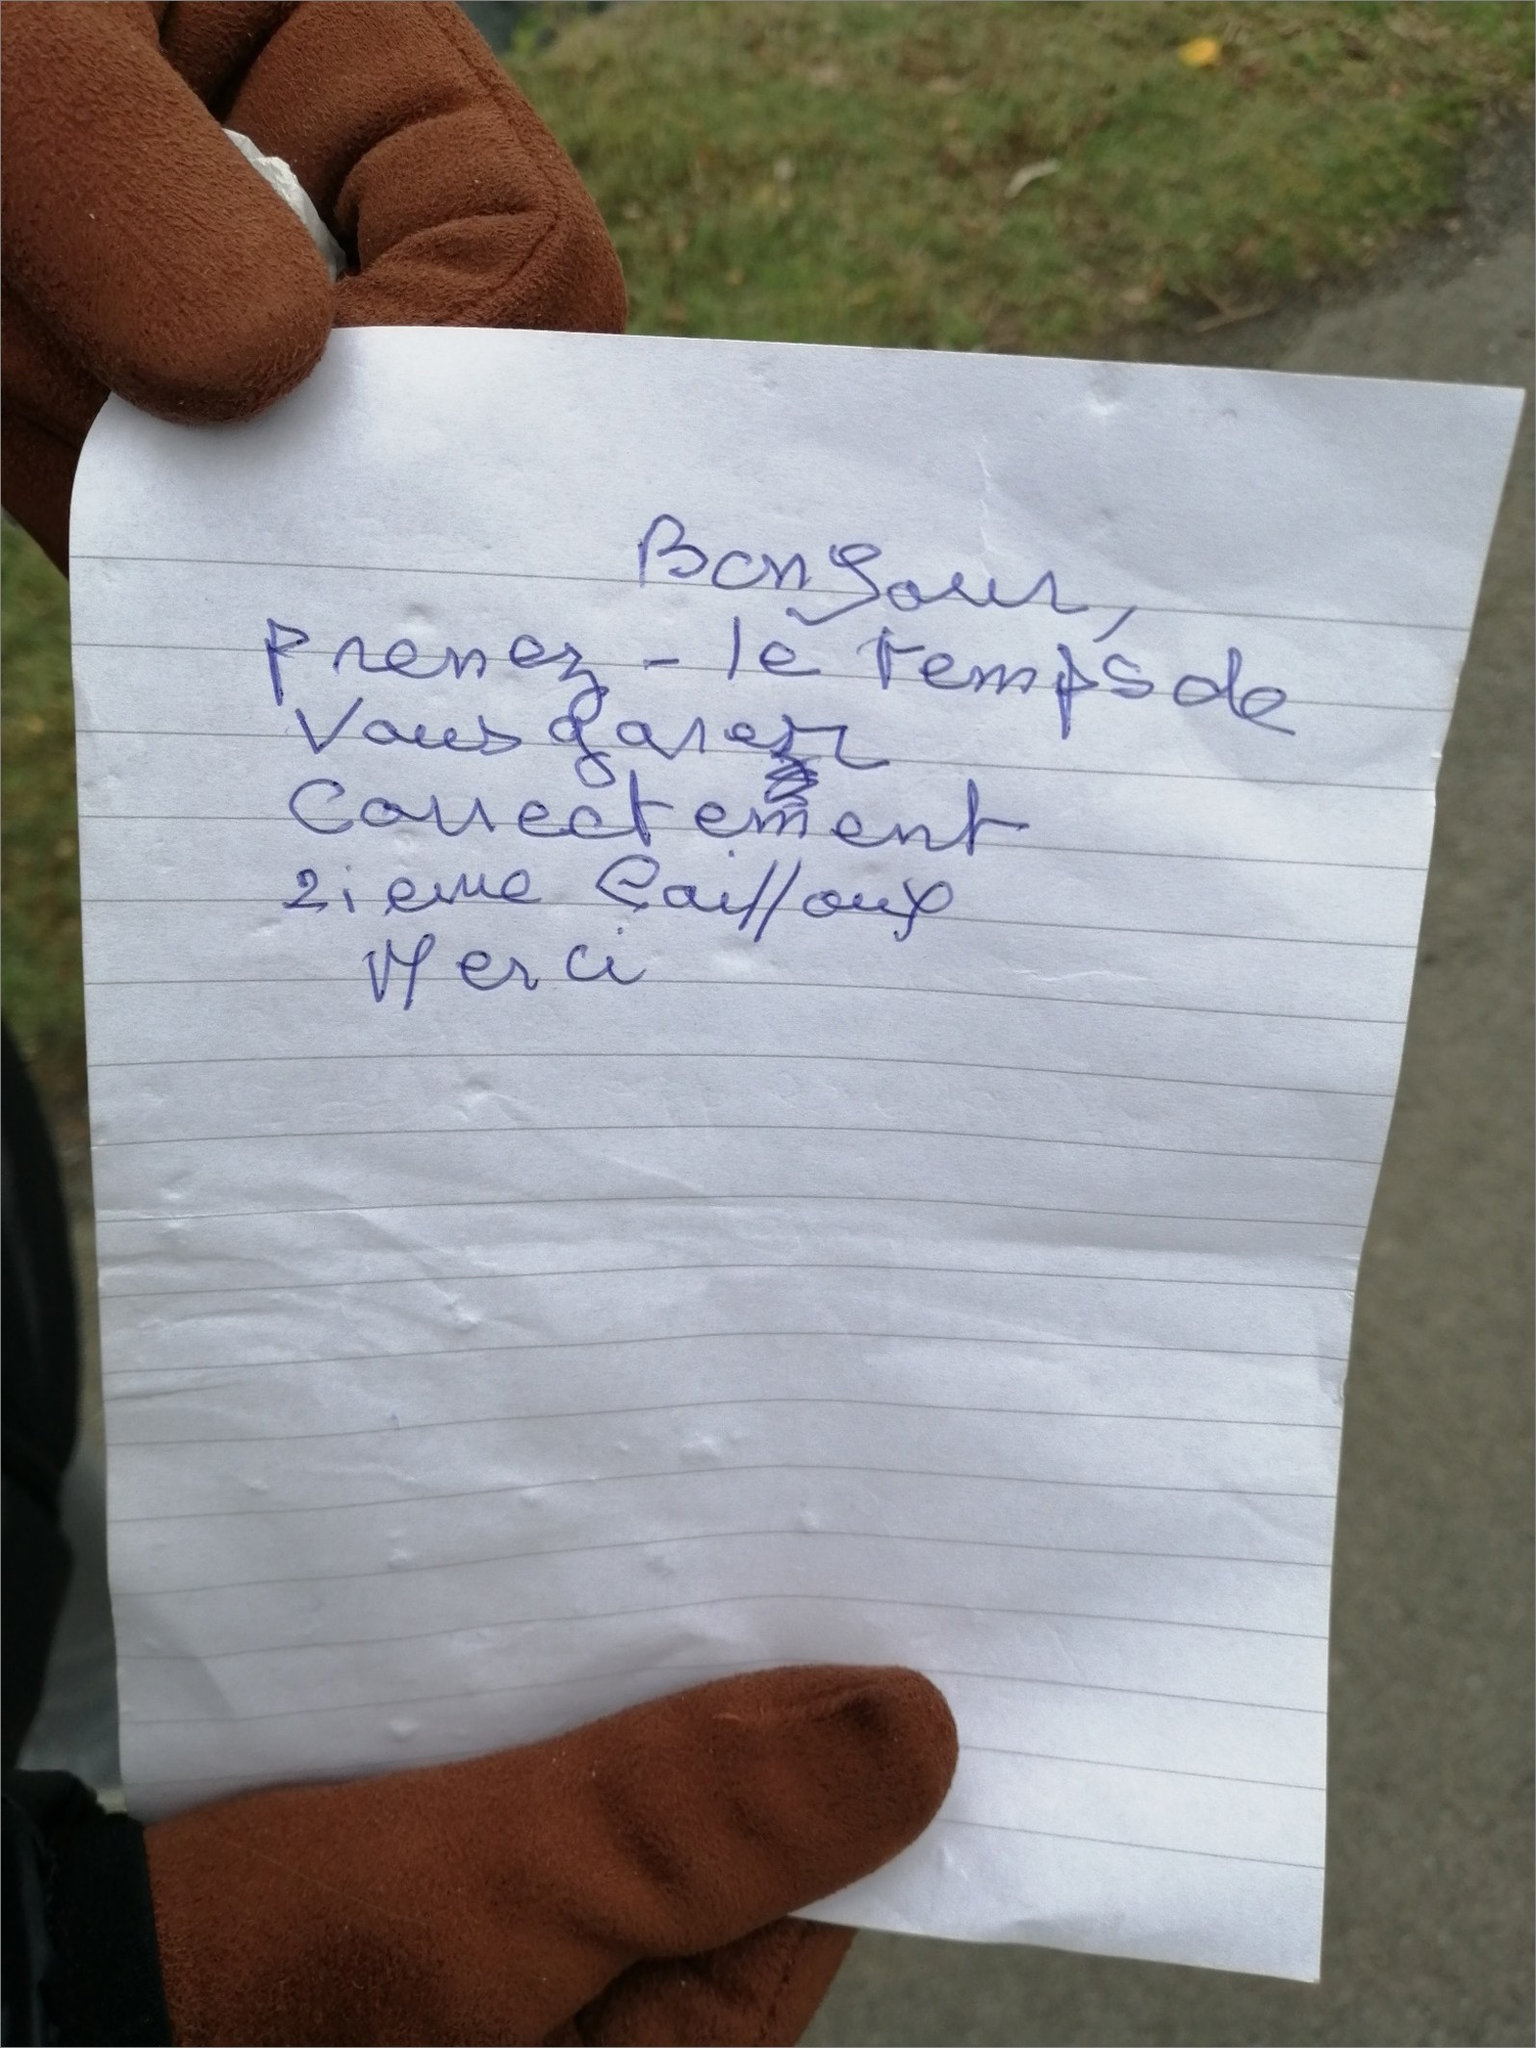 Bonjour,
prenez - le temps de
vous garer
correctement
2ieme Cailloux
Merci